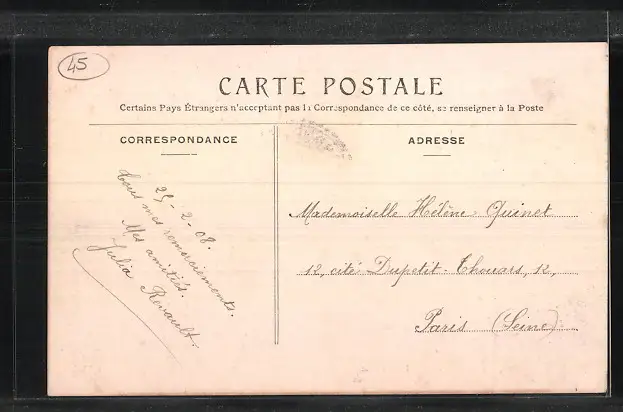 45
CARTE POSTALE
Certains Pays Étrangers n'acceptant pas la Correspondance de ce côté, se renseigner à la Poste
CORRESPONDANCE
25-2-08.
Tous mes remerciements.
Mes amitiés.
Julia Renault.
ADRESSE
Mademoiselle Hélène Quinet
12, cité Dupetit-Thouars, 12,
Paris (Seine)